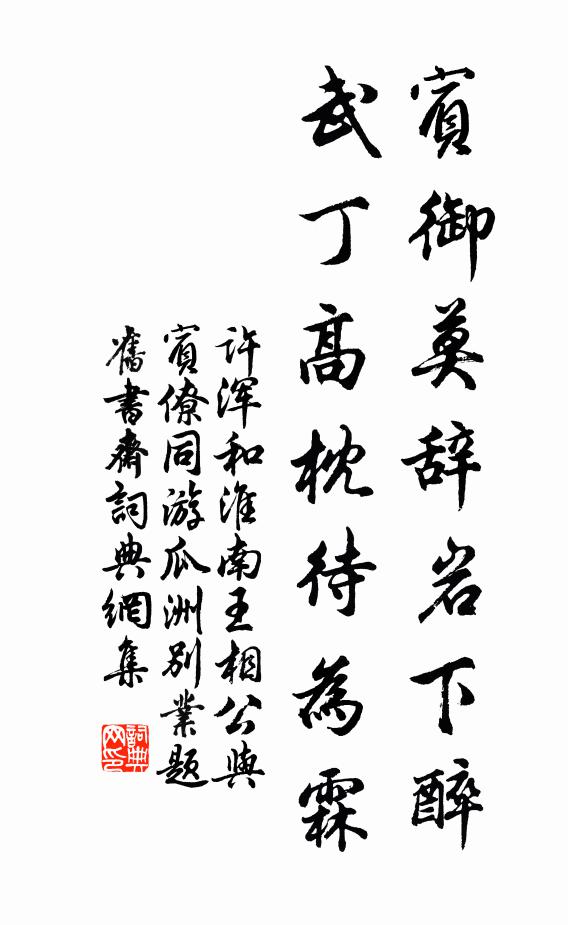 賓御莫辞岩下醉
武丁高枕待為霖
许浑和淮南王相公與
賓僚同游瓜洲别業題
舊書齋詞典網集
詞典网印